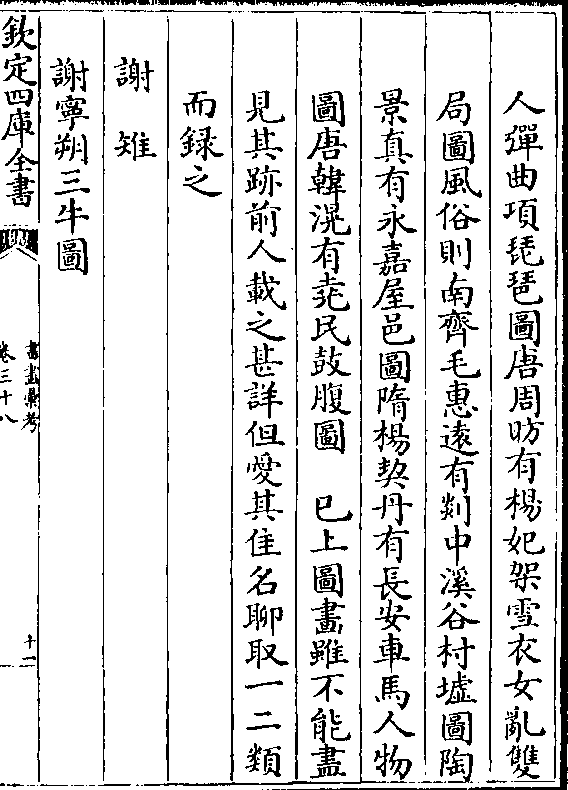 人彈曲項琵琶圖唐周昉有楊妃架雪衣女亂雙
局圖風俗則南齊毛惠遠有剡中溪谷村墟圖陶
景真有永嘉屋邑圖隋楊契丹有長安車馬人物
圖唐韓滉有堯民鼓腹圖　已上圖畫雖不能盡
見其跡前人載之甚詳但愛其佳名聊取一二類
而録之
謝雉
謝寧朔三牛圖
欽定四庫全書
書畫彙考
卷三十八
十一